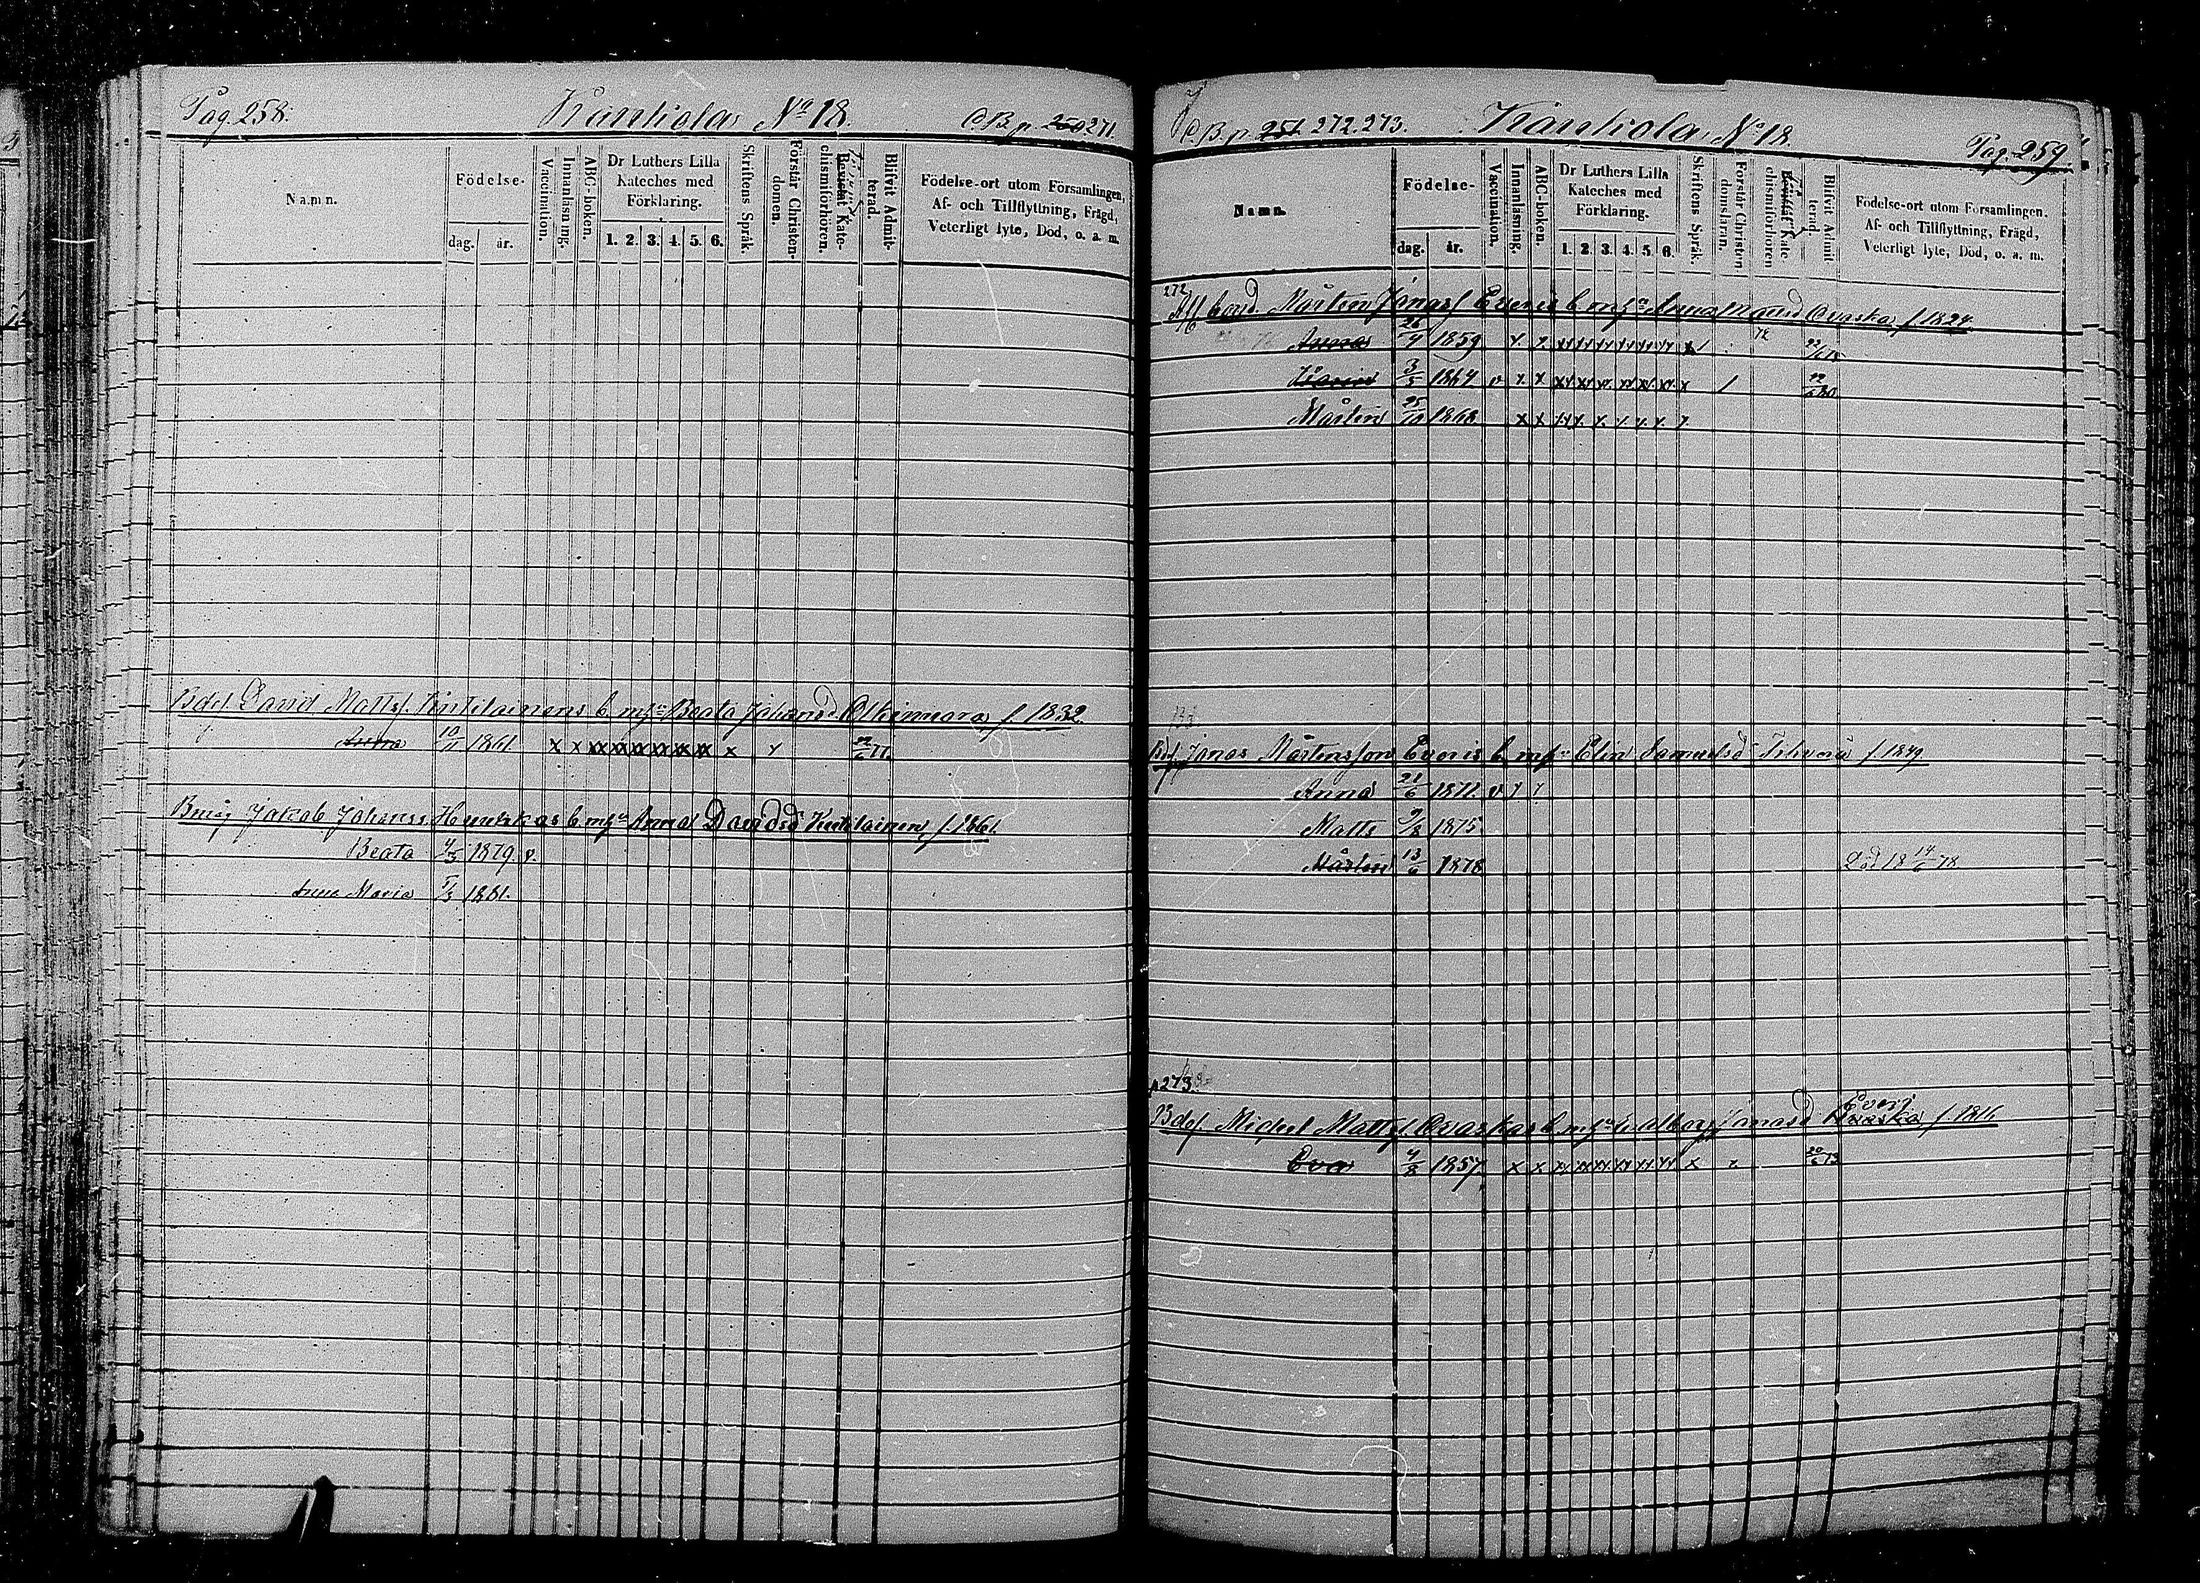 Pag. 258.
Känkiola N:o 18.
C.B. p. 250 271.
Namn.
Födelse-
dag. år.
Vaccination.
Innanläsning.
ABC-boken.
Dr Luthers Lilla Kateches med Förklaring.
1. 2. 3. 4. 5. 6.
Skriftens Språk.
Förstår Christendomen.
Bevistat Katechismiförhören.
Blifvit Admitterad.
Födelse-ort utom Församlingen, Af- och Tillflyttning, Frägd, Veterligt lyte, Död, o. a. m.
Bdef David Mattss. Kutilainens b. m. h:u Beata Johansd. Olkinuora f. 1832.
Anna 10/11 1861 x x xx xx xx xx xx xx x x 77.
Bmåg Jakob Johanss. b. m. h:u Anna Davidsd Kutilainen f. 1861.
Beata 4/3 1879 v.
Anna Maria 1/3 1881.
C.B. p. 251. 272. 273.
Känkiola N:o 18.
Pag. 259.
Namn.
Födelse-
dag. år.
Vaccination.
Innanläsning.
ABC-boken.
Dr Luthers Lilla Kateches med Förklaring.
1. 2. 3. 4. 5. 6.
Skriftens Språk
Förstår Christendomsläran.
Katechismiförhören
Blifvit Admitterad.
Födelse-ort utom Församlingen, Af- och Tillflyttning, Frägd, Veterligt lyte, Död, o. a. m.
272
Mårten Jonass. Everis b. m. h:u Anna Ovaska f. 1824
Anna 26/4 1859
Karin 3/5 1864 v 80
Mårten 25/10 1868.
Bdf Jonas Mårtensson Everis b. m. h:u Elin Samuelsd f. 1849
Anna 21/6 1871. v
Matts 9/8 1875
Mårten 13/6 1878 Död 18 14/6 78
273.
Bdef. Michel Mattss. Ovaskas b. m. h:u Walborg Jonasd Everi Ovaska f. 1816
Eva 4/8 1857 x x 73